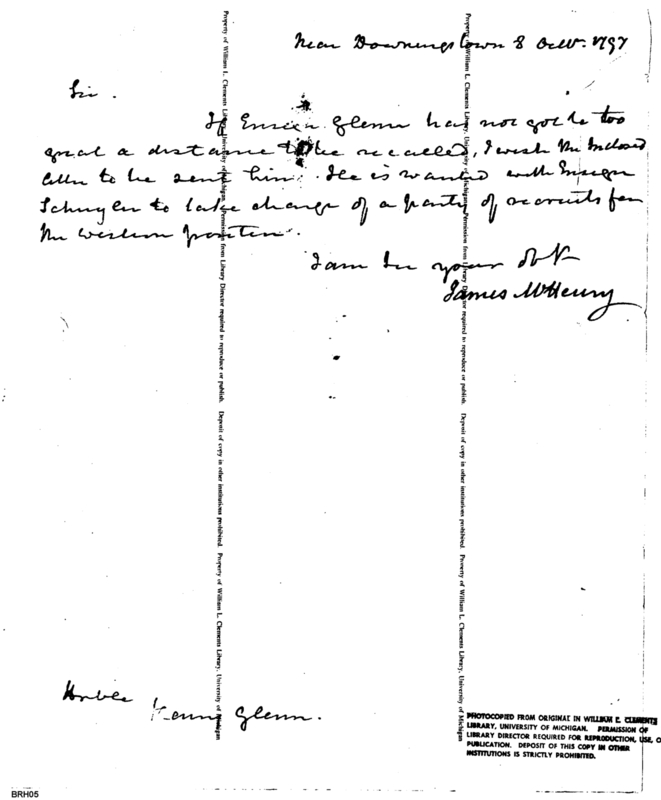 Near Downingstown 8 Octbr. 1797
Sir.
If Ensign Glenn has not got to too
great a distance to be recalled, I wish the inclosed
letter to be sent him. He is wanted with Ensign
Schuyler to take charge of a party of recruits for
the western frontier.
I am Sir your obt
James McHenry
Honble
Henry Glenn.
Property of William L. Clements Library, University of Michigan. Permission from Library Director required to reproduce or publish. Deposit of copy in other institutions prohibited. Property of William L. Clements Library, University of Michigan
Property of William L. Clements Library, University of Michigan. Permission from Library Director required to reproduce or publish. Deposit of copy in other institutions prohibited. Property of William L. Clements Library, University of Michigan
PHOTOCOPIED FROM ORIGINAL IN WILLIAM L. CLEMENTS
LIBRARY, UNIVERSITY OF MICHIGAN. PERMISSION OF
LIBRARY DIRECTOR REQUIRED FOR REPRODUCTION, USE, O
PUBLICATION. DEPOSIT OF THIS COPY IN OTHER
INSTITUTIONS IS STRICTLY PROHIBITED.
BRH05